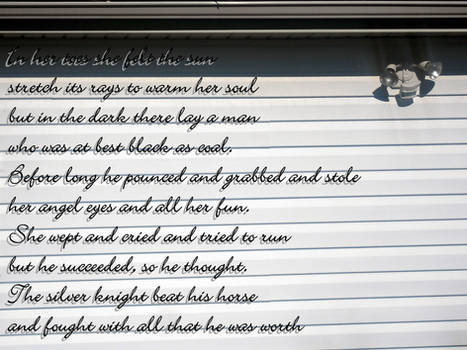 In her toes she felt the sun
stretch its rays to warm her soul
but in the dark there lay a man
who was at best black as coal.
Before long he pounced and grabbed and stole
her angel eyes and all her fun.
She wept and cried and tried to run
but he succeeded, so he thought.
The silver knight beat his horse
and fought with all that he was worth